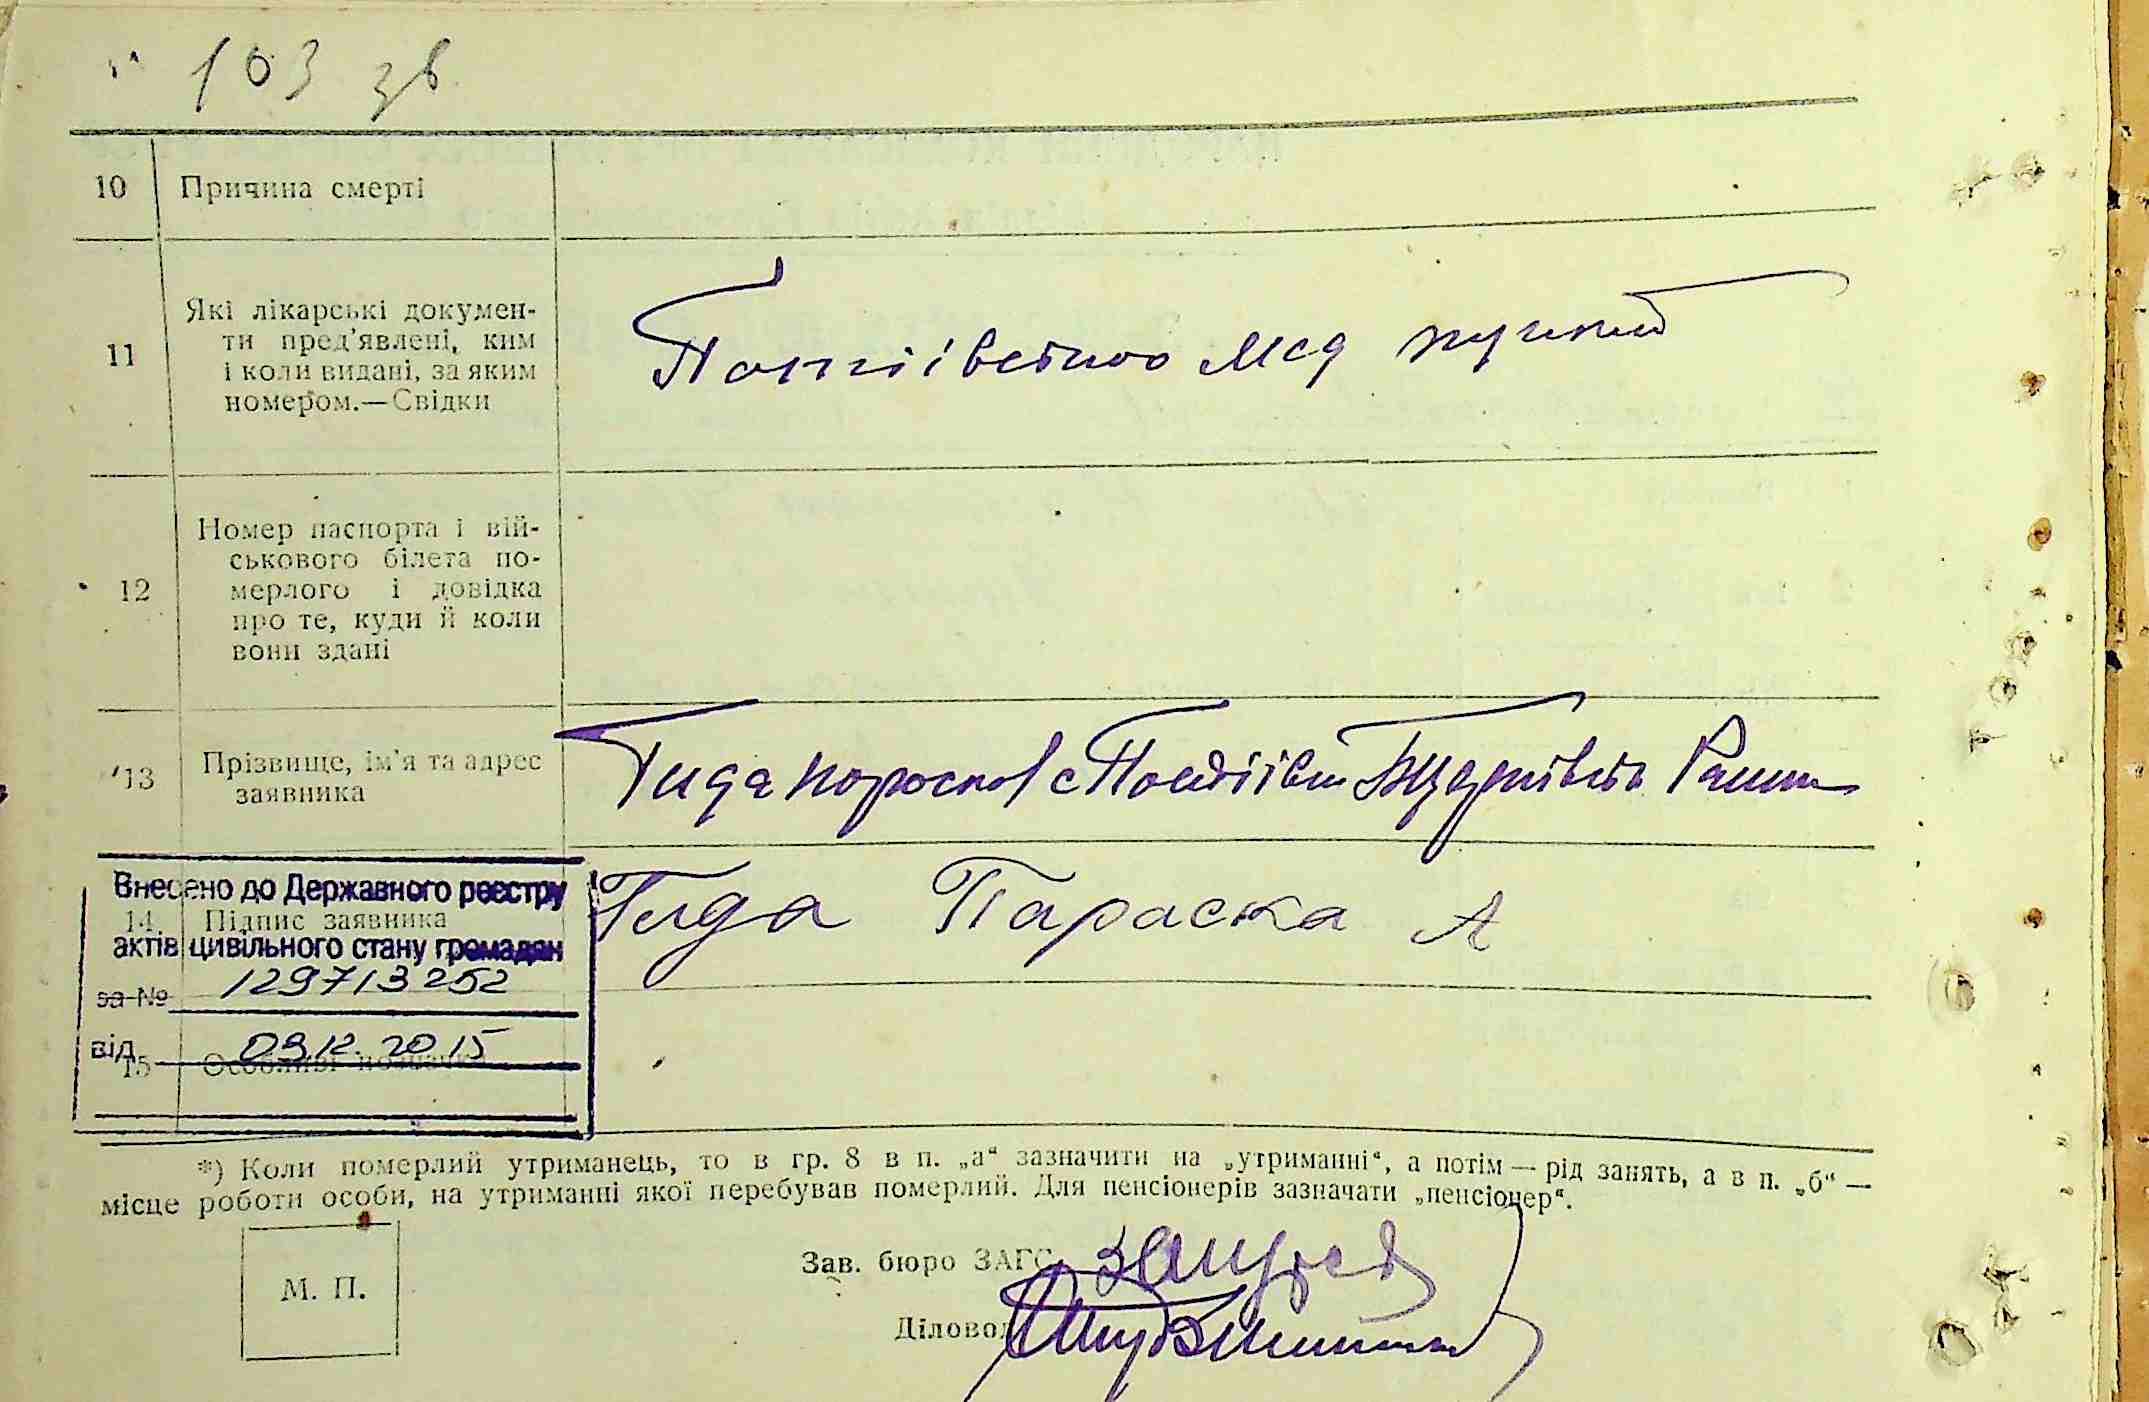 103 зв
10 Причина смерті
11 Які лікарські докумен-
ти пред'явлені, ким
і коли видані, за яким
номером.—Свідки
мед пункт
12 Номер паспорта і вій-
ськового білета по-
мерлого і довідка
про те, куди й коли
вони здані
13 Прізвище, ім'я та адрес
заявника
Гида с
Внесено до Державного реєстру
14 Підпис заявника
Гида Параска А
актів цивільного стану громадян
за № 129713252
від 09.12.2015
15 Особливі позначки
*) Коли померлий утриманець, то в гр. 8 в п. „а“ зазначити на „утриманні“, а потім — рід занять, а в п. „б“ —
місце роботи особи, на утриманні якої перебував померлий. Для пенсіонерів зазначати „пенсіонер“.
М. П.
Зав. бюро ЗАГС
Діловод